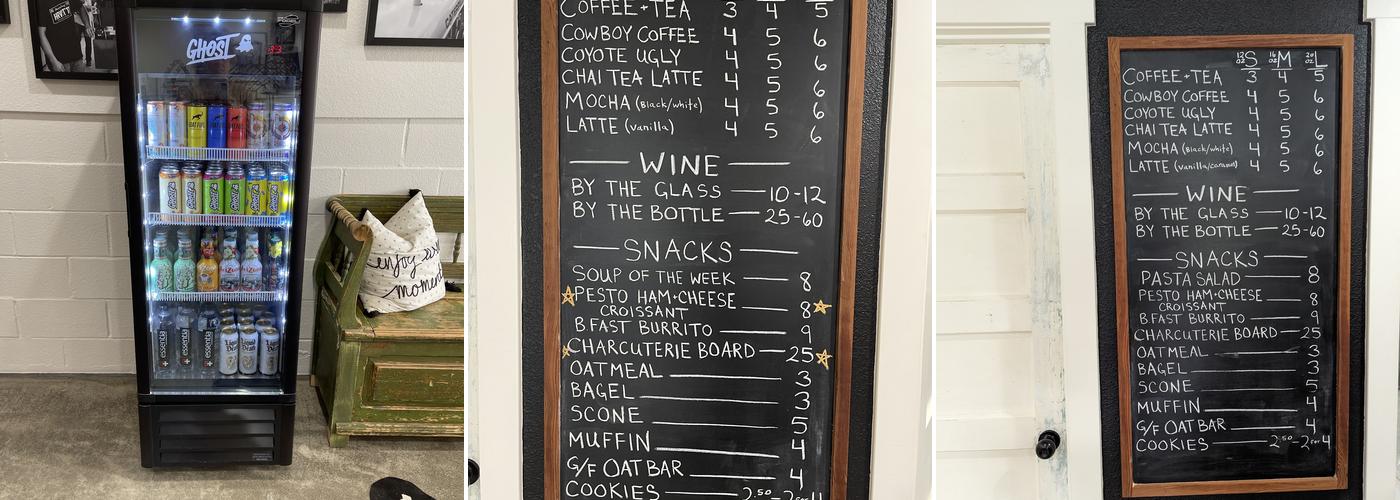 GHOST
33
GHOST GHOST GHOST GHOST GHOST
ARIZONA
essentia essentia essentia
Liquid Death Liquid Death Liquid Death
enjoy
moment
COFFEE+TEA 3 4 5
COWBOY COFFEE 4 5 6
COYOTE UGLY 4 5 6
CHAI TEA LATTE 4 5 6
MOCHA (Black/white) 4 5 6
LATTE (vanilla) 4 5 6
WINE
BY THE GLASS — 10-12
BY THE BOTTLE — 25-60
SNACKS
SOUP OF THE WEEK — 8
PESTO HAM+CHEESE
CROISSANT — 8
B.FAST BURRITO — 9
CHARCUTERIE BOARD — 25
OATMEAL — 3
BAGEL — 3
SCONE — 5
MUFFIN — 4
G/F OAT BAR — 4
COOKIES — 2.50 - 2 for 4
12oz S 16oz M 20oz L
COFFEE+TEA 3 4 5
COWBOY COFFEE 4 5 6
COYOTE UGLY 4 5 6
CHAI TEA LATTE 4 5 6
MOCHA (Black/white) 4 5 6
LATTE (vanilla/caramel) 4 5 6
WINE
BY THE GLASS — 10-12
BY THE BOTTLE — 25-60
SNACKS
PASTA SALAD — 8
PESTO HAM+CHEESE
CROISSANT — 8
B.FAST BURRITO — 9
CHARCUTERIE BOARD — 25
OATMEAL — 3
BAGEL — 3
SCONE — 5
MUFFIN — 4
G/F OAT BAR — 4
COOKIES — 2.50 - 2 for 4